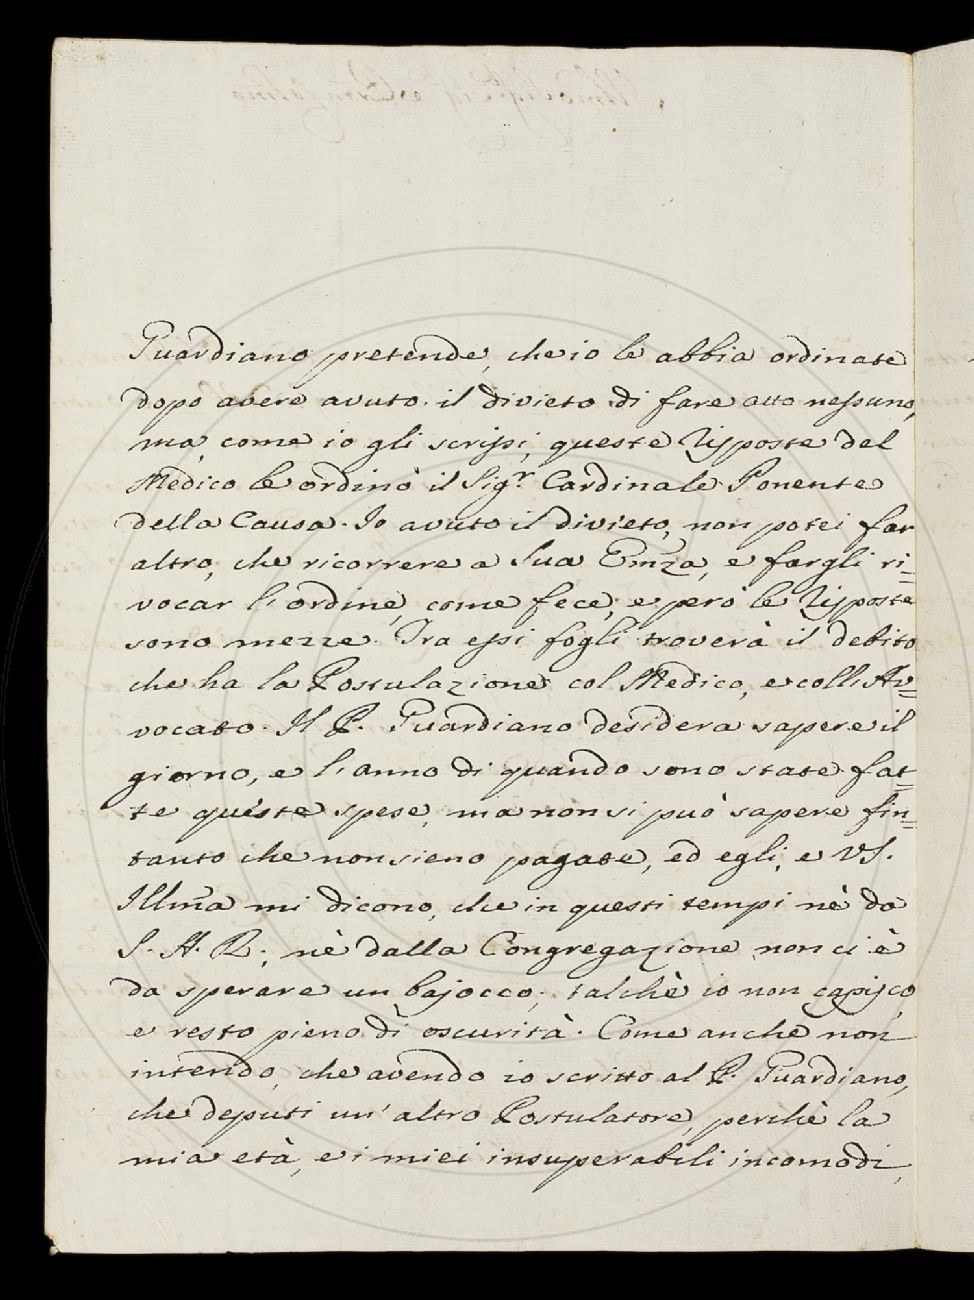 Guardiano pretende, che io le abbia ordinate
dopo avere avuto il divieto di fare atto nessuno,
ma come io gli scrissi, queste Risposte del
Medico le ordinò il Sigr. Cardinale Ponente
della Causa. Io avuto il divieto, non potei far
altro, che ricorrere a Sua Emza, e fargli ri=
vocar l'ordine, come fece, e però le Risposte
sono mezze. Tra essi fogli troverà il debito
che ha la Postulazione col Medico, e coll'Av=
vocato. Il P. Guardiano desidera sapere il
giorno, e l'anno di quando sono state fat=
te queste spese, ma non si può sapere fin=
tanto che non sieno pagate, ed egli, e VS.
Illma mi dicono, che in questi tempi nè da
S. A. R., nè dalla Congregazione non ci è
da sperare un bajocco, talchè io non capisco,
e resto pieno di oscurità. Come anche non
intendo, che avendo io scritto al P. Guardiano,
che deputi un' altro Postulatore, perchè la
mia età, e i miei insuperabili incomodi,